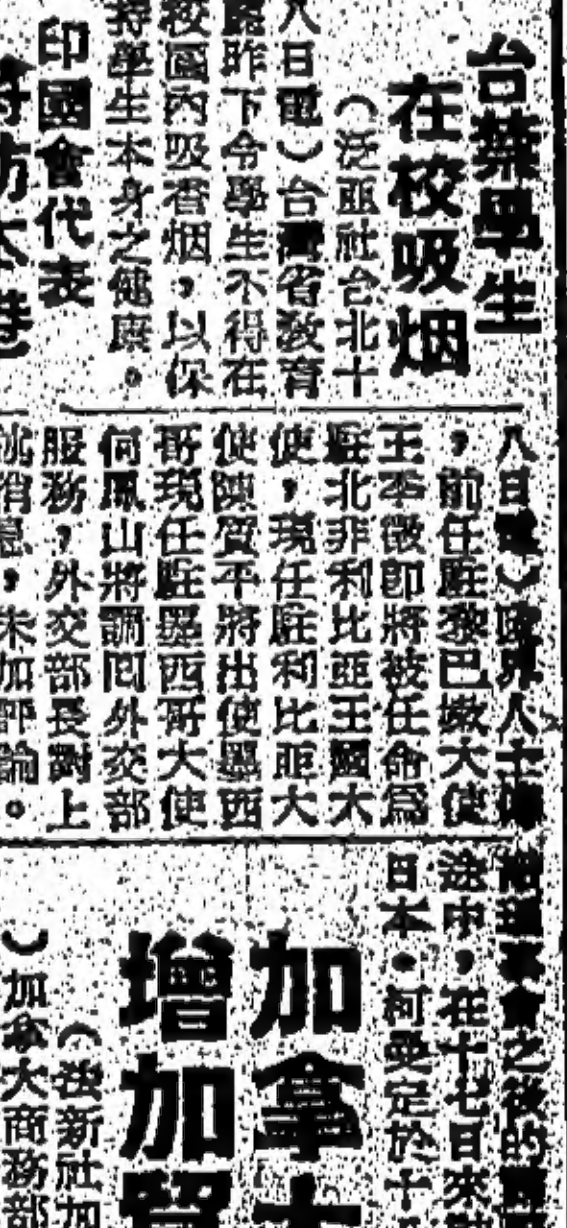 台禁學生
在校吸烟
（泛亞社台北十
八日電）台灣省教育
昨下令學生不得在
校區內吸香烟，以保
持學生本身之健康。
印國會代表
訪本港
八日電）人士
，前任駐黎巴嫩大使
王季徵即將被任命爲
駐北非利比亞王國大
使，現任駐利比亞大
使陳質平將出使墨西
哥現任駐墨西哥大使
何鳳山將調回外交部
服務，外交部長對上
消息，未加評論。
會之後的
途中，在十七日來
日本。柯定於十
加拿大
增加貿
（法新社加
）加拿大商務部